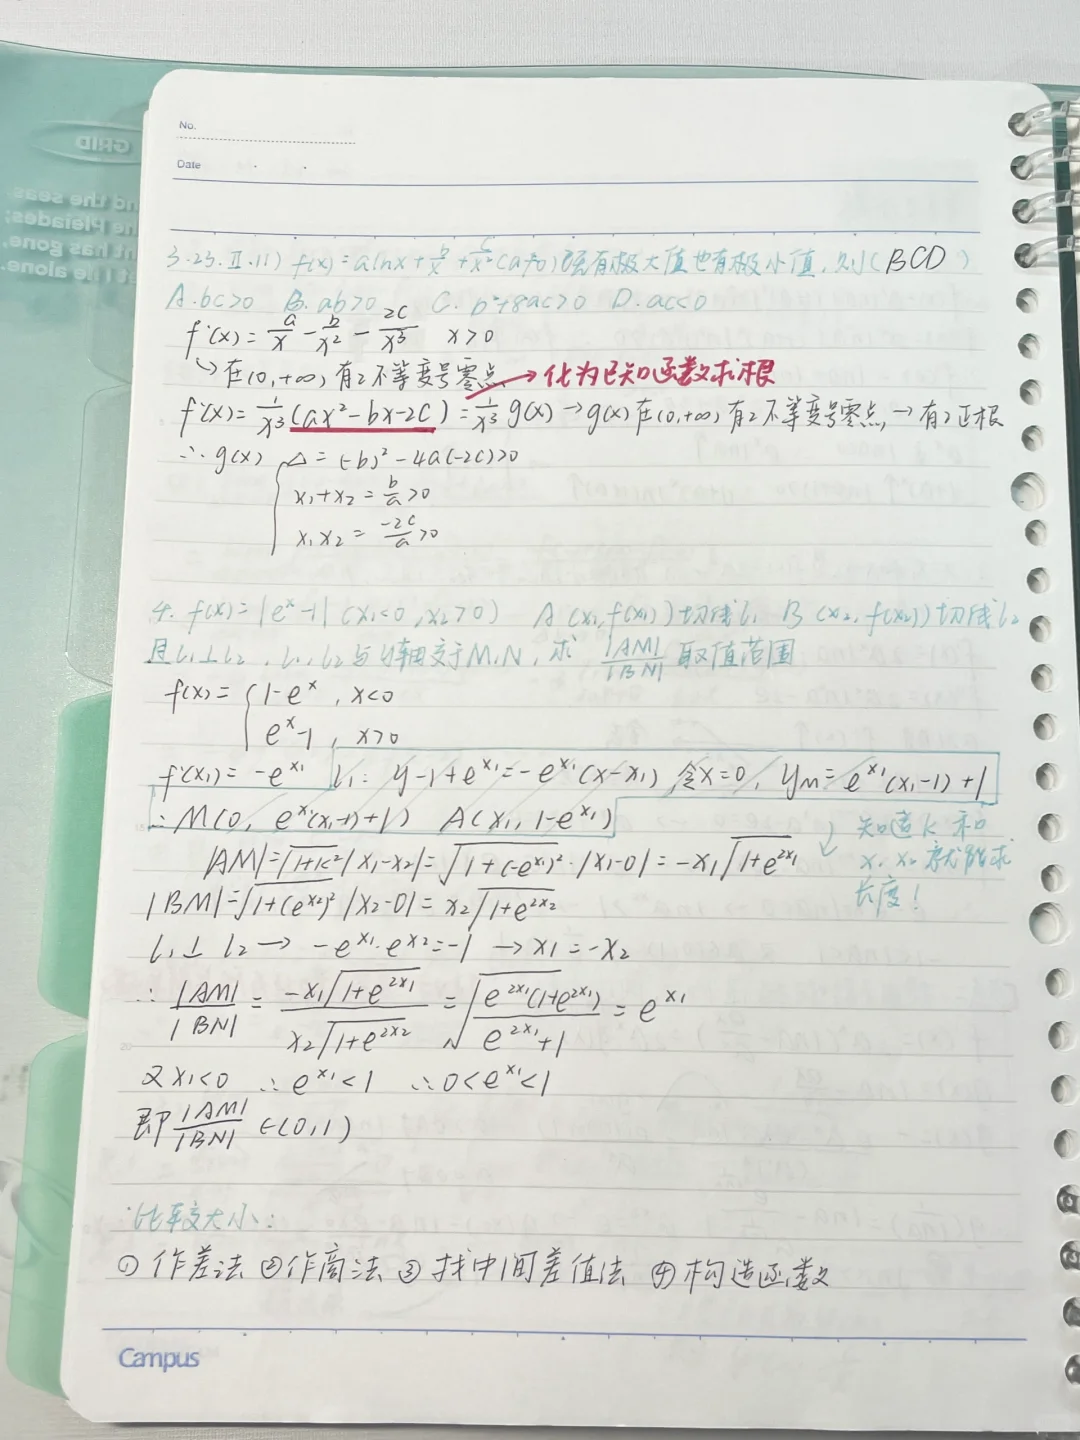 No.
Date
3.23.Ⅱ.11) f(x)=alnx+b/x+c/x²(a≠0)既有极大值也有极小值,则(BCD)
A.bc>0 B.ab>0 C.b²+8ac>0 D.ac<0
f'(x)=a/x-b/x²-2c/x³ x>0
↳在(0,+∞)有2不等变号零点→化为已知函数求根
f'(x)=1/x³(ax²-bx-2c)=1/x³ g(x)→g(x)在(0,+∞)有2不等变号零点→有2正根
∴g(x) { △=(-b)²-4a(-2c)>0
x₁+x₂=b/a>0
x₁x₂=-2c/a>0
4. f(x)=|eˣ-1| (x₁<0,x₂>0) A(x₁,f(x₁))切线l₁ B(x₂,f(x₂))切线l₂
且l₁⊥l₂,l₁,l₂与y轴交于M,N,求|AM|/|BN|取值范围
f(x)={1-eˣ,x<0
eˣ-1,x>0
f'(x₁)=-e^x₁ l₁:y-1+e^x₁=-e^x₁(x-x₁) 令x=0,yM=e^x₁(x₁-1)+1
∴M(0,e^x₁(x₁-1)+1) A(x₁,1-e^x₁)
↓知道k和
x₁x₂就能求
长度!
|AM|=√(1+k²)|x₁-x₂|=√(1+(-e^x₁)²)·|x₁-0|=-x₁√(1+e^2x₁)
|BM|=√(1+(e^x₂)²)|x₂-0|=x₂√(1+e^2x₂)
l₁⊥l₂→-e^x₁·e^x₂=-1→x₁=-x₂
∴|AM|/|BN|=-x₁√(1+e^2x₁)/x₂√(1+e^2x₂)=√(e^2x₁(1+e^2x₁)/(e^2x₁+1))=e^x₁
又x₁<0 ∴e^x₁<1 ∴0<e^x₁<1
即|AM|/|BN|∈(0,1)
比较大小:
①作差法②作商法③找中间差值法 ④构造函数
Campus